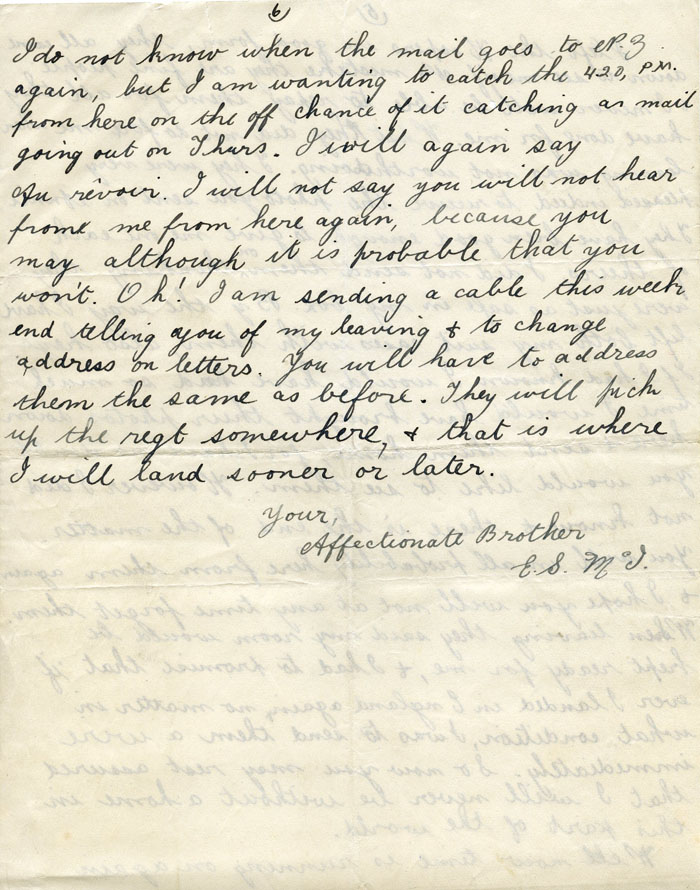 6
I do not know when the mail goes to N.Z.
again, but I am wanting to catch the 4 20, P.M.
from here on the off chance of it catching a mail
going out on Thurs. I will again say
Au révoir. I will not say you will not hear
from me from here again, because you
may although, it is probable that you
won't. Oh! I am sending a cable this week
end telling you of my leaving & to change
address on letters. You will have to address
them the same as before. They will pick
up the regt somewhere, & that is where
I will land sooner or later.
Your,
Affectionate Brother
E. S. McI.